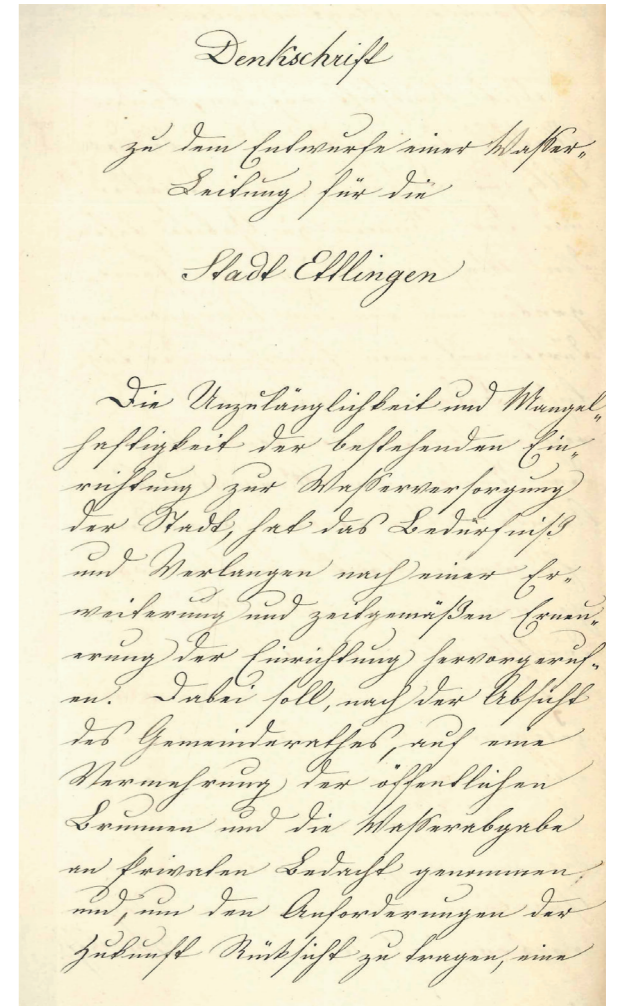 Denkschrift
zu dem Entwurfe einer Wasser-
Leitung für die
Stadt Ettlingen
Die Unzulänglichkeit und Mangel-
haftigkeit der bestehenden Ein-
richtung zur Wasserversorgung
der Stadt, hat das Bedürfniß
und Verlangen nach einer Er-
weiterung und zeitgemäßen Erneu-
erung der Einrichtung hervorgeruf-
en. Dabei soll, nach der Absicht
des Gemeinderathes, auf eine
Vermehrung der öffentlichen
Brunnen und die Wasserabgabe
an Privaten Bedacht genommen
und, um den Anforderungen der
Zukunft Rücksicht zu tragen, eine